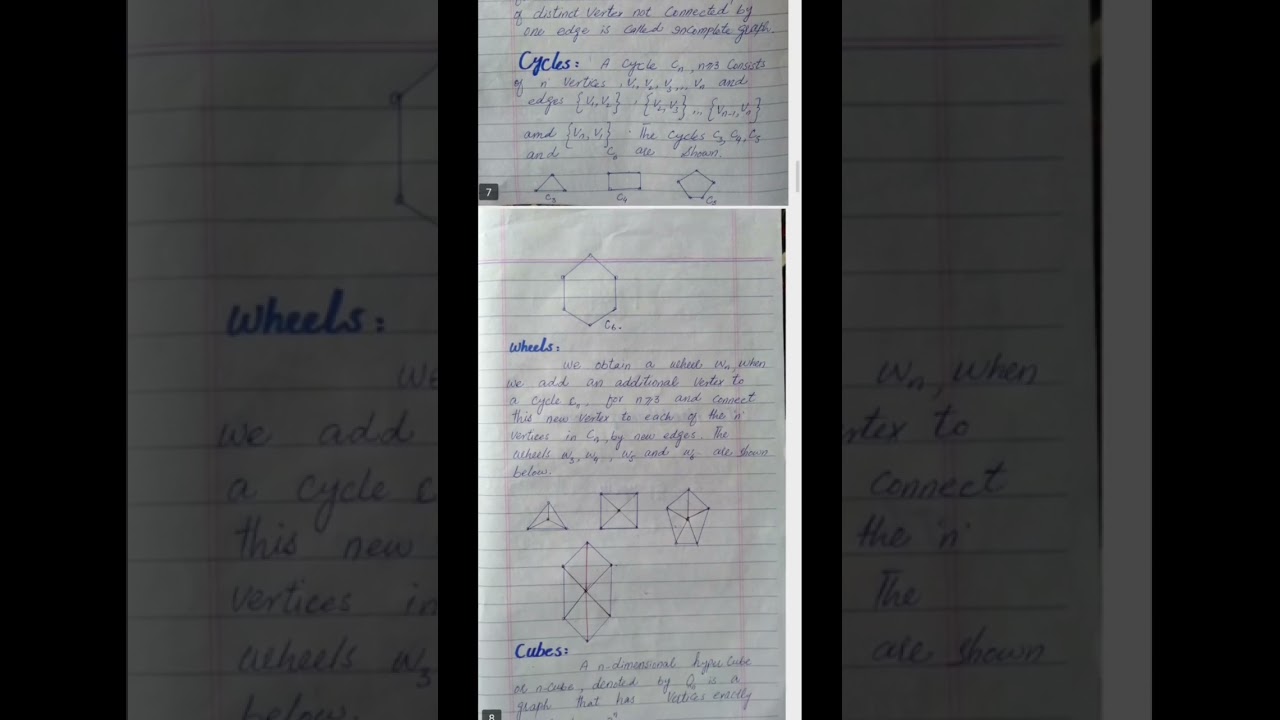 of distinct vertex not connected by
one edge is called incomplete graph.
Cycles: A cycle Cn, n≥3 consists
of 'n' vertices, V1, V2, V3, ... Vn and
edges {V1,V2}, {V2,V3} ... {Vn-1,Vn}
and {Vn, V1}. The cycles C3, C4, C5
and C6 are shown.
C3 C4 C5
7
C6.
Wheels:
we obtain a wheel Wn, when
we add an additional vertex to
a cycle Cn, for n≥3 and connect
this new vertex to each of the 'n'
vertices in Cn, by new edges. The
wheels W3, W4, W5 and W6 are shown
below.
Cubes:
A n-dimensional hyper cube
or n-cube, denoted by Qn is a
graph that has vertices exactly
8
Wheels:
we add
a cycle
this new
vertices in
wheels W3
below.
Wn, when
to
connect
the 'n'
The
are shown